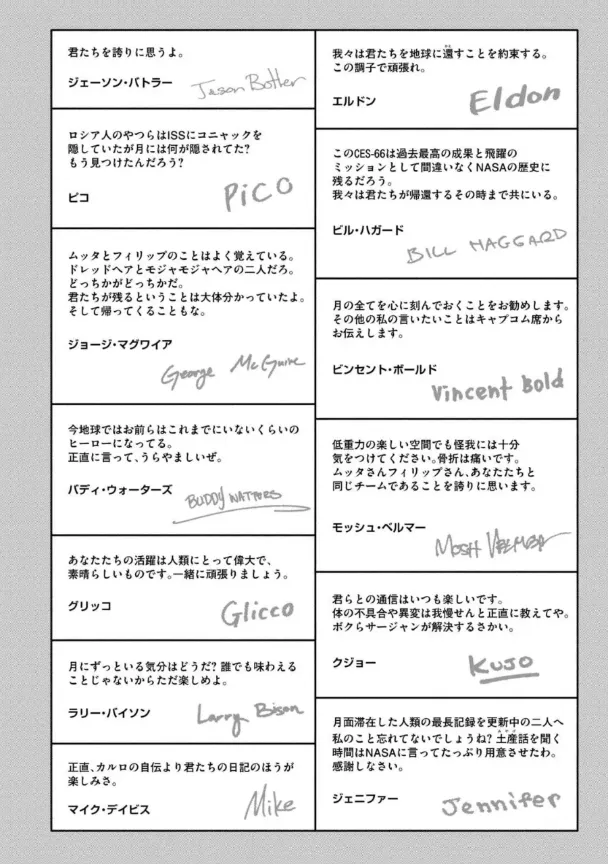 君たちを誇りに思うよ。
ジェーソン・バトラー
Jason Butler
ロシア人のやつらはISSにコニャックを
隠していたが月には何が隠されてた?
もう見つけたんだろう?
ピコ
PiCO
ムッタとフィリップのことはよく覚えている。
ドレッドヘアとモジャモジャヘアの二人だろ。
どっちかがどっちかだ。
君たちが残るということは大体分かっていたよ。
そして帰ってくることもな。
ジョージ・マグワイア
George McGuire
今地球ではお前らはこれまでにいないくらいの
ヒーローになってる。
正直に言って、うらやましいぜ。
バディ・ウォーターズ
BUDDY WATTERS
あなたたちの活躍は人類にとって偉大で、
素晴らしいものです。一緒に頑張りましょう。
グリッコ
Glicco
月にずっといる気分はどうだ? 誰でも味わえる
ことじゃないからただ楽しめよ。
ラリー・バイソン
Larry Bison
正直、カルロの自伝より君たちの日記のほうが
楽しみさ。
マイク・デイビス
Mike
我々は君たちを地球に還すことを約束する。
この調子で頑張れ。
エルドン
Eldon
このCES-66は過去最高の成果と飛躍の
ミッションとして間違いなくNASAの歴史に
残るだろう。
我々は君たちが帰還するその時まで共にいる。
ビル・ハガード
BILL HAGGARD
月の全てを心に刻んでおくことをお勧めします。
その他の私の言いたいことはキャプコム席から
お伝えします。
ビンセント・ボールド
Vincent Bold
低重力の楽しい空間でも怪我には十分
気をつけてください。骨折は痛いです。
ムッタさんフィリップさん、あなたたちと
同じチームであることを誇りに思います。
モッシュ・ベルマー
MOSH
君らとの通信はいつも楽しいです。
体の不具合や異変は我慢せんと正直に教えてや。
ボクらサージャンが解決するさかい。
クジョー
KUJO
月面滞在した人類の最長記録を更新中の二人へ
私のこと忘れてないでしょうね? 土産話を聞く
時間はNASAに言ってたっぷり用意させたわ。
感謝しなさい。
ジェニファー
Jennifer